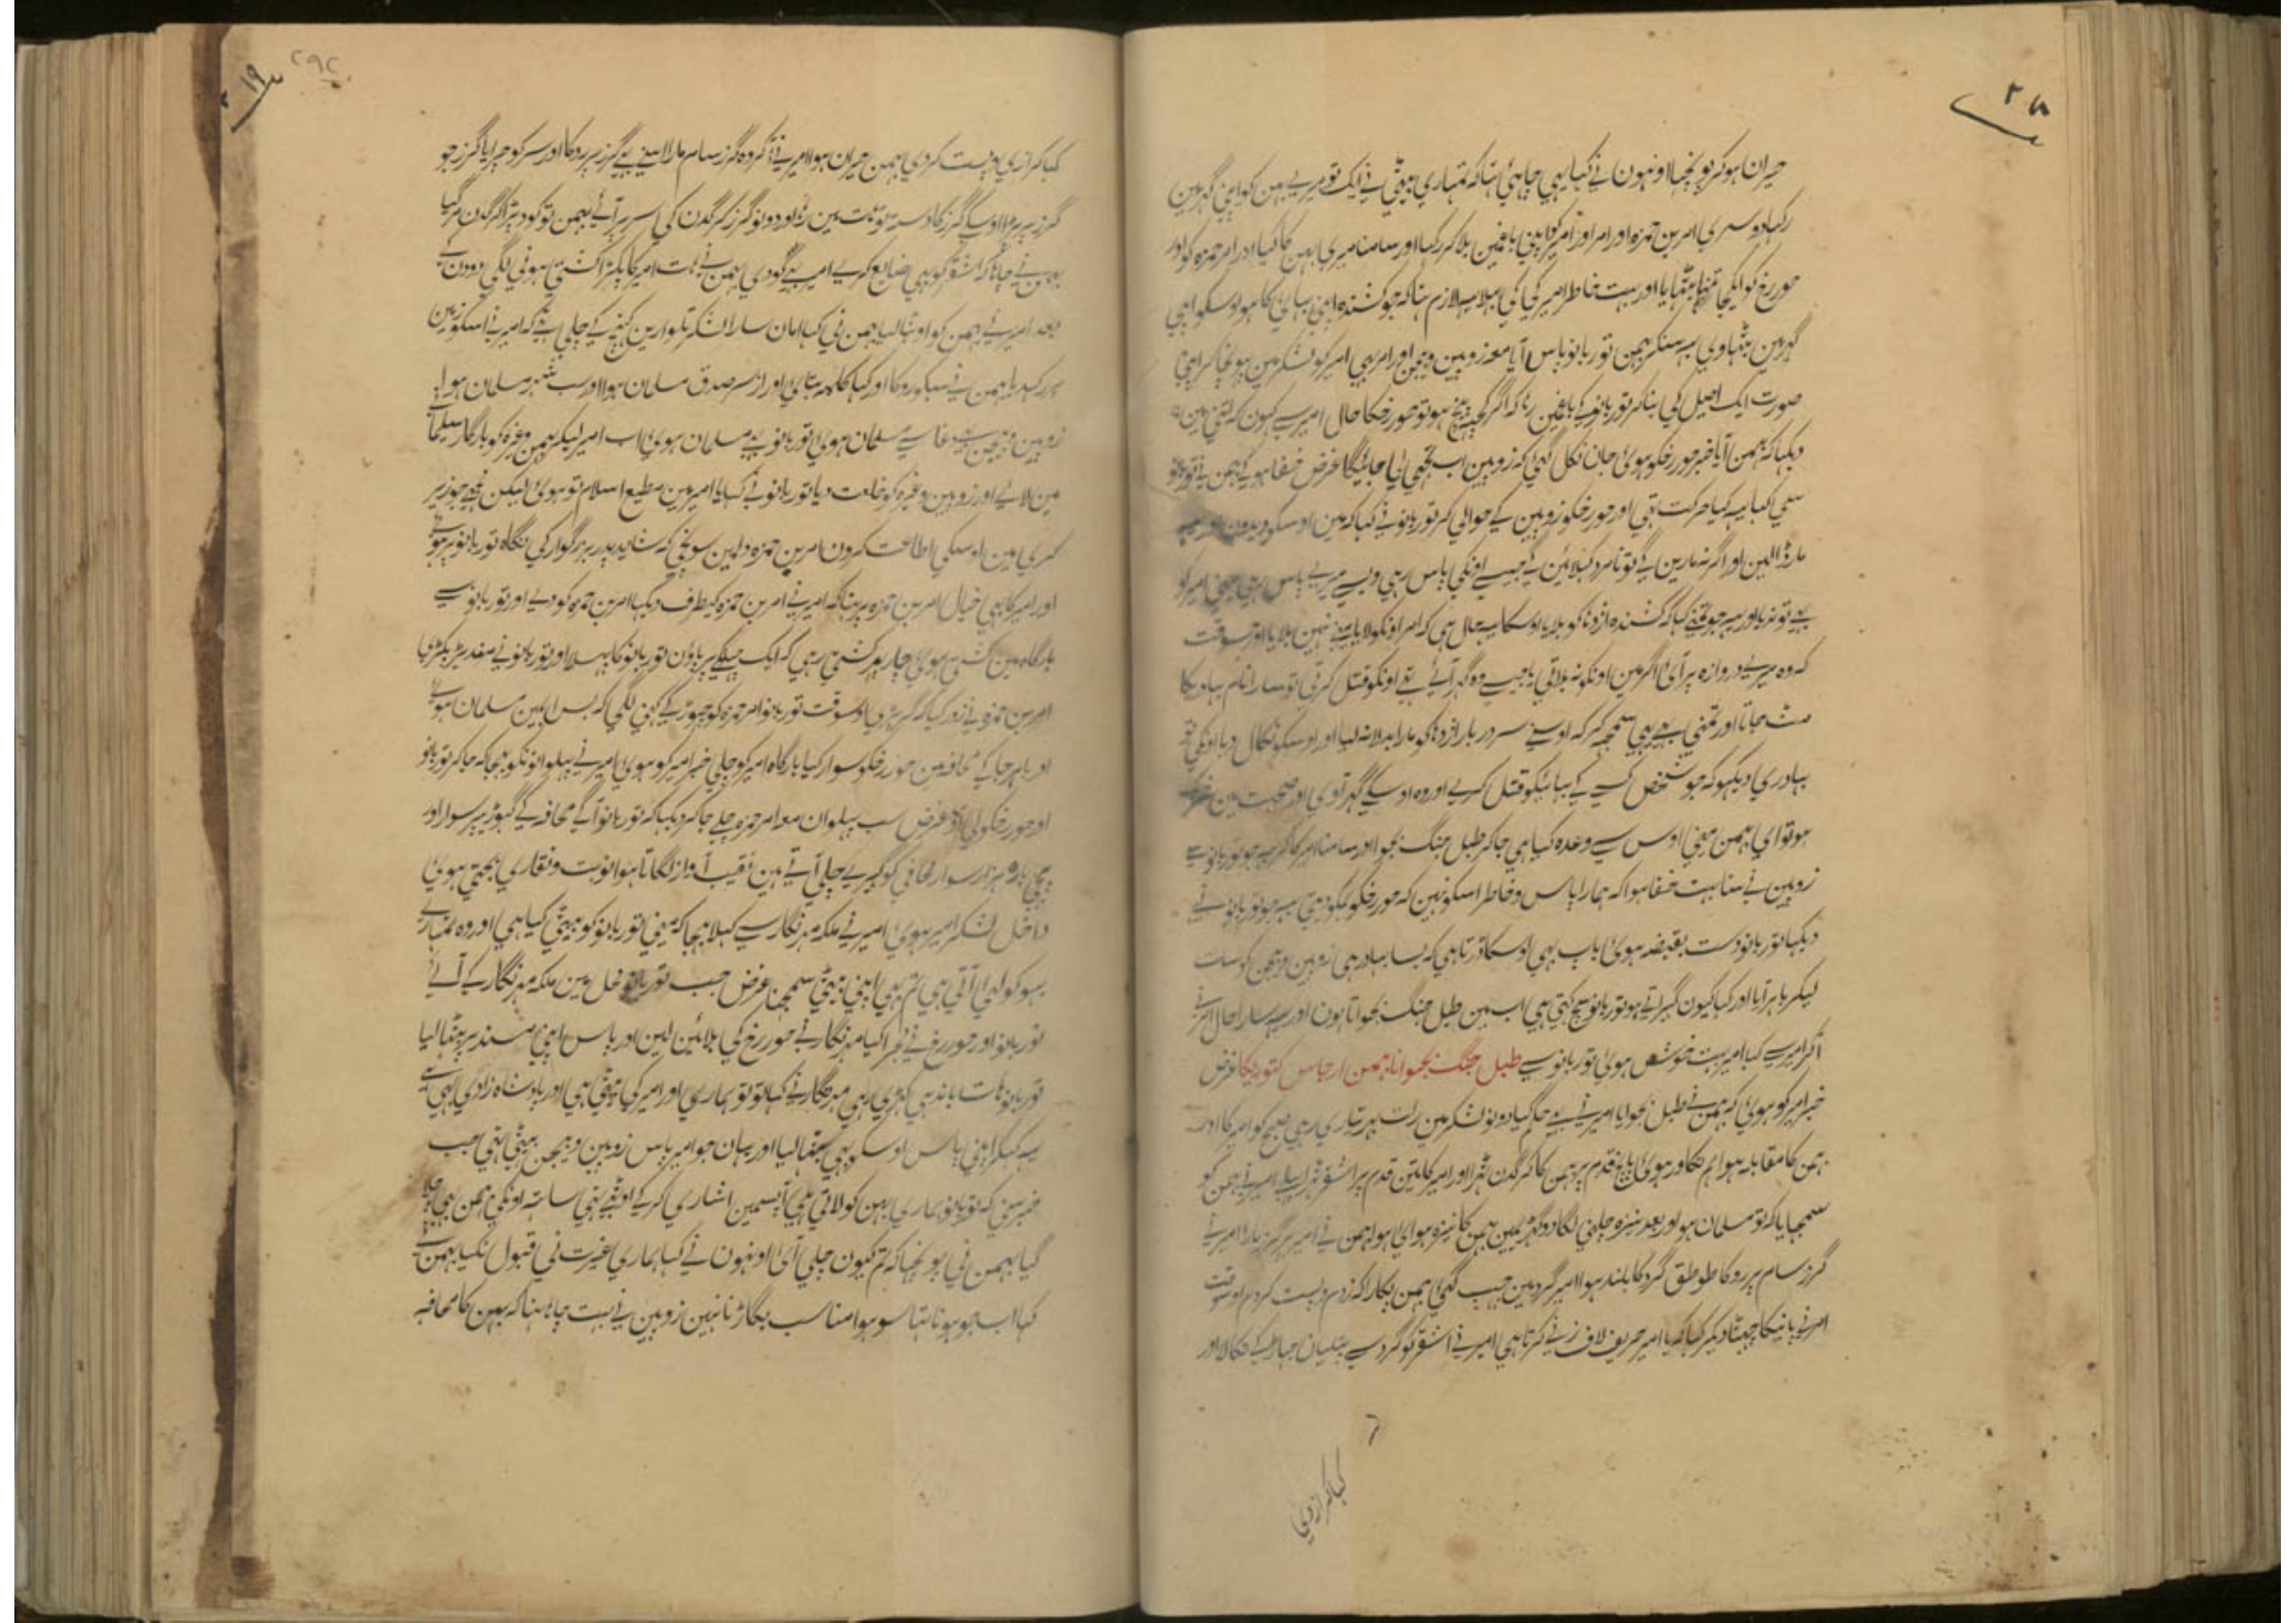 حیران ہوکر پونچہا اونہون نی کہا یہی چاہئی تہا کہ تمہاری بیٹی نی ایک تو میری بہن کو اپنی گہر مین
رکہا دوسری امر بن حمزہ اور امر اور امیر کو اپنی باغمین بلاکر رکہا اور سامنا میری بہن کا کیا اور امر حمزہ کو اور
حور رخ کو ایکجا تنہا بٹہایا اور بہت خاطر امیر کی کی بہلا یہہ لازم تہا کہ جو کشندہ اپنی بہائی کا ہو اوسکو اپنی
گہر مین بٹہاوی یہہ سنکر بہمن تور بانو پاس آیا معہ زوبین و بیجن اور امر بہی امیر کو لشکر مین پونہچا کر اپنی
صورت ایک اصیل کی بناکر تور بانو کی باغمین رہا کہ اگر کچہہ پیچ ہو تو حور رخکا حال امیر سی کہون کہ اتنی مین
دیکہا کہ بہمن آیا خبر حور رخکو ہوئی جان نکل گئی کہ زوبین اب تجہی لی جائیگا غرض خفا ہو کی بہمن نی تور بانو
سی کہا یہہ کیا حرکت تہی اور حور رخکو زوبین کی حوالی کر تور بانو نی کہا کہ مین اوسکو ندون
مار ڈالین اور اگر نہ مارین گی تو نامرد کہلائین گی جیسی اونکی پاس رہی ویسی میری پاس رہی مینی امیر کو
کہا کہ کشندہ ازدہا کو بلایا اوسکا یہہ حال ہی کہ امر اونکو لایا مینی نہین بلایا اور جسوقت
کہ وہ میری دروازہ پر آئی اگر مین اونکو نہ بلاتی یا جیسی وہ گہر آئی تہی اونکو قتل کرتی تو سارا نام بہادریکا
مٹ جاتا اور تمنی بہی یہی سمجہہ کر کہ اوسنی سر دربار ازدہا کو مارا بدلا نہ لیا اور اوسکو نکال دیا اونکی تو
بہادری دیکہو کہ جو شخص کسی کی بہائیکو قتل کری اور وہ اوسکی گہر آوی اور صحبت مین
ہو تو ای بہمن مینی اوس سی وعدہ کیا ہی جاکر طبل جنگ بجوا اور سامنا امیر کا کر یہہ جو تور بانو سی
زوبین نی سنا بہت خفا ہوا کہ ہمارا پاس و خاطر اسکو نہین کہ حور رخکو ہمکو نہین دیتی یہہ جو تور بانو نی
دیکہا تور بانو دست بقبضہ ہوئی باپ بہی اوسکا ڈرتا ہی کہ بسا بہادر ہی زوبین و بیجن کو سات
لیکر باہر آیا اور کہا کیون گہبراتی ہو تور بانو سچ کہتی ہی اب مین طبل جنگ بجواتا ہون اور یہہ سارا حال امر نی
آکر امیر سی کہا امیر بہت خوش ہوئی تور بانو سی طبل جنگ بجوانا بہمن ارجاس کتوریکا غرض
خبر امیر کو ہوئی کہ بہمن نی طبل بجوایا امیر نی بہی حکم کیا دونو لشکر مین رات بہر تیاری رہی صبح کو امیر کا اور
بہمن کا مقابلہ ہوا ہم تکاور ہوئی پانچ قدم پر بہمن کا کرگدن ہٹا اور امیر کا تین قدم پر اشقر ہٹا پہلی امیر نی بہمن کو
سمجہایا کہ تو مسلمان ہو اور بعد نیزہ چلنی لگا دو گہڑیمین بہمن کا نیزہ ہوائی ہوا بہمن نی امیر پر گرز مارا امیر نی
گرز سام پر روکا طوطق گرد کا بلند ہوا امیر گرد مین چہپ گئی بہمن پکارا کہ زدم و پست کردم اوسوقت
امر نی پانیکا چہینٹا دیکر کہا کہ یا امیر حریف لاف زنی کرتا ہی امیر نی اشقر کو گرد سی پتلیان جہاڑ کی نکالا اور
کہا کہ ازدی
کہا کرا زدی و پست کردی بہمن حیران ہوا امیر نی گرز سام مارا اسنی بہی گرز پر روکا اور سر کو چرایا گرز جو
گرز پر پڑا اوسکی گرز کا دستہ تو ہات مین رہا اور دونو گرز کرگدن کی سر پر آئی بہمن تو کود پڑا کرگدن مر گیا
بہمن نی چاہا کہ اشقر کو بہی ضایع کری امیر بہی کود ی بہمن نی ہات امیر کا پکڑا کشتی ہونی لگی دو دن کی
بعد امیر نی بہمن کو اوٹہا لیا بہمن نی کہا امان سارا لشکر تلوارین کہینچ کی چلی آئی کہ امیر نی اسکو زمین
پر رکہدیا بہمن نی سبکو روکا اور کہا کلمہ بتائی اور از سر صدق مسلمان ہوا اور سب شہر مسلمان ہوا
زوبین و بیجن بہی دغا سی مسلمان ہوئی تور بانو بہی مسلمان ہوئی اب امیر لیکر بہمن وغیرہ کو بارگاہ سلیمانی
مین لائی اور زوبین وغیرہ کو خلعت دیا تور بانو نی کہا یا امیر مین مطیع اسلام تو ہوئی لیکن مجہی جو زیر
کری مین اوسکی اطاعت کرون امر بن حمزہ دلمین سونچی کہ شاید پدر بزرگوار کی نگاہ تور بانو پر ہو
اور امیر کا بہی خیال امر بن حمزہ پر تہا کہ امیر نی امر بن حمزہ کیطرف دیکہا امر بن حمزہ کود ی اور تور بانو سی
بارگاہ مین کشتی ہوئی چار پہر کشتی رہی کہ ایک جہلکی پر پاون تور بانو کا پہسلا اور تور بانو نی
امر بن حمزہ نی زور کیا کہ گر پڑی اوسوقت تور بانو امر حمزہ کو چہوڑ کی کہنی لگی کہ بس اب مین مسلمان ہوئی
اور باہر جا کی محافہ مین حور رخکو سوار کیا بارگاہ امیر کو چلی خبر امیر کو ہوئی امیر نی پہلوانونکو بہیجا کہ جاکر تور بانو
اور حور رخکو لی آؤ غرض سب پہلوان معہ امر حمزہ چلی جاکر دیکہا کہ تور بانو آگی محافہ کی گہوڑی پر سوار اور
پیچہی بارہ ہزار سوار محافی کو گہیری چلی آتی ہین نقیب آواز لگاتا ہوا نوبت و نقاری بجتی ہوئی
داخل لشکر امیر ہوئی امیر نی ملکہ مہر نگار سی کہلا بہیجا کہ مینی تور بانو کو بیٹی کیا ہی اور وہ تمہاری
بہو کو لئی آتی ہی تم بہی اپنی بیٹی سمجہنا غرض جب تور بانو محل مین ملکہ مہر نگار کی آئی
تور بانو اور حور رخ نی مجرا کیا مہر نگار نی حور رخ کی بلائین لین اور پاس اپنی مسند پر بٹہا لیا
تور بانو ہات باندہی کہڑی رہی مہر نگار نی کہا تو تو ہماری اور امیر کی بیٹی ہی اور بادشاہ زادی ہی
یہہ کہکر اپنی پاس اوسکو بہی بٹہا لیا اور یہان جو امیر پاس زوبین و بیجن بیٹہی تہی جب
خبر سنی کہ تور بانو ہماری بہن کو لاتی ہی آپسمین اشاری کر کی اوٹہی تہی ساتہہ اونکی بہمن بہی چلا
گیا بہمن نی پونچہا کہ تم کیون چلی آئی اونہون نی کہا ہماری غیرت نی قبول نکیا بہمن نی
کہا اب جو ہونا تہا سو ہوا مناسب بگاڑنا نہین زوبین نی بہت چاہا تہا کہ بہن کا محافہ